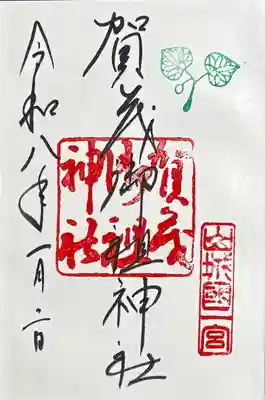 山城國
一宮
賀茂御祖神社
賀茂
御祖
神社
令和八年一月二日